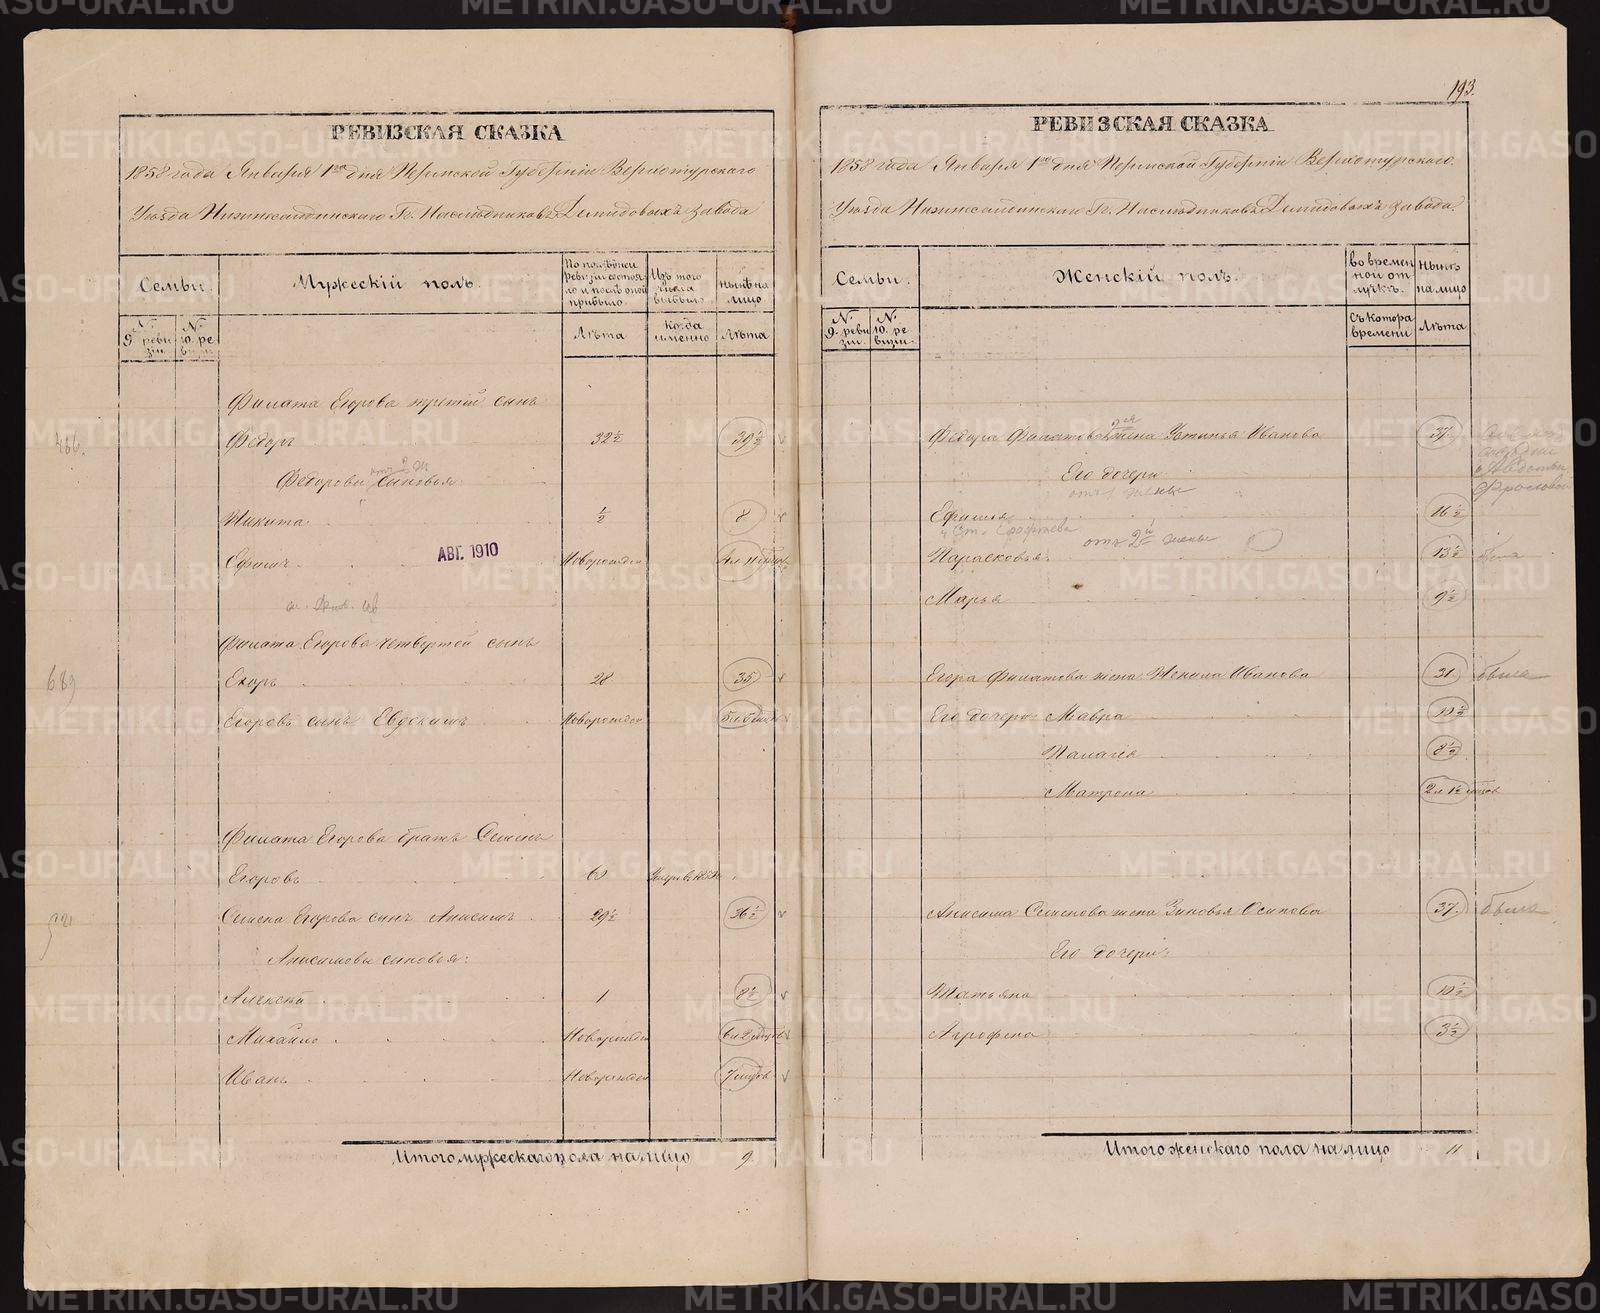 193.
РЕВИЗСКАЯ СКАЗКА
1858 года Января 1го дня Пермской Губерніи Верхотурскаго
Уѣзда Нижнесалдинскаго Гг. Наслѣдниковъ Демидовыхъ завода
Семьи.
Мужескій полъ.
По послѣдней ревизіи состояло и послѣ оной прибыло.
Изъ того числа выбыло
нынѣ на лицо
№ 9й ревизіи
№ 10. ревизіи
Лѣта
когда именно
Лѣта
Филата Егорова третій сынъ
466.
Федоръ 32½ 39½
Федоровы сыновья
Никита ½ 8
Ефимъ Новорожден
АВГ. 1910
Филата Егорова четвертой сынъ
689
Егоръ 28 35
Егоровъ сынъ Евдокимъ Новорожден
Филата Егорова братъ Семенъ
Егоровъ 60
Семена Егорова сынъ Анисимъ 29½ 36½
Анисимовы сыновья:
Алексѣй 1 8½
Михайло Новорожден
Иванъ Новорожден 7 мцовъ
Итого мужескаго пола на лицо 9.
РЕВИЗСКАЯ СКАЗКА
1858 года Января 1го дня Пермской Губерніи Верхотурскаго
Уѣзда Нижнесалдинскаго Гг. Наслѣдниковъ Демидовыхъ завода.
Семьи.
Женскій полъ.
во временной отлучкѣ.
нынѣ на лицо
№ 9. ревизіи.
№ 10. ревизіи.
Съ котора времени
Лѣта
2ая
Федора Филатова жена Устинья Иванова 37.
Его дочери
отъ 1 жены
Ефимья 16½
отъ 2й жены
Парасковья. 13½
Марья 9½
Егора Филатова жена Ненила Иванова 31 была
Его дочери: Мавра 10½
Палагея 8½
Матрена
Анисима Семенова жена Зиновья Осипова 37. была
Его дочери:
Татьяна 10½
Агрофена 3½
Итого женскаго пола на лицо 11
METRIKI.GASO-URAL.RU